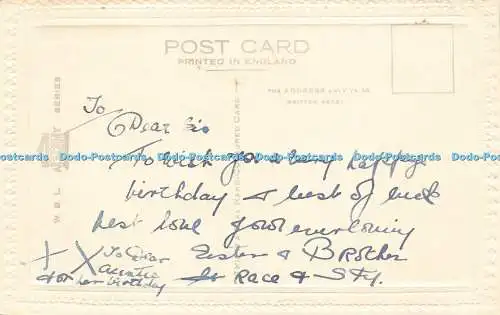 POST CARD
PRINTED IN ENGLAND
THE ADDRESS ONLY TO BE
WRITTEN HERE.
W. B. L.
SERIES
Dodo-Postcards Dodo-Postcards Dodo-Postcards Dodo-Postcards Dodo-Postcards Dodo-Postcards Dodo-Postcards
To
Dear Sis
To wish you a very happy
birthday & best of luck
best love your ever loving
Sister & Brother
Race &
X X To Dear
Auntie
for her birthday